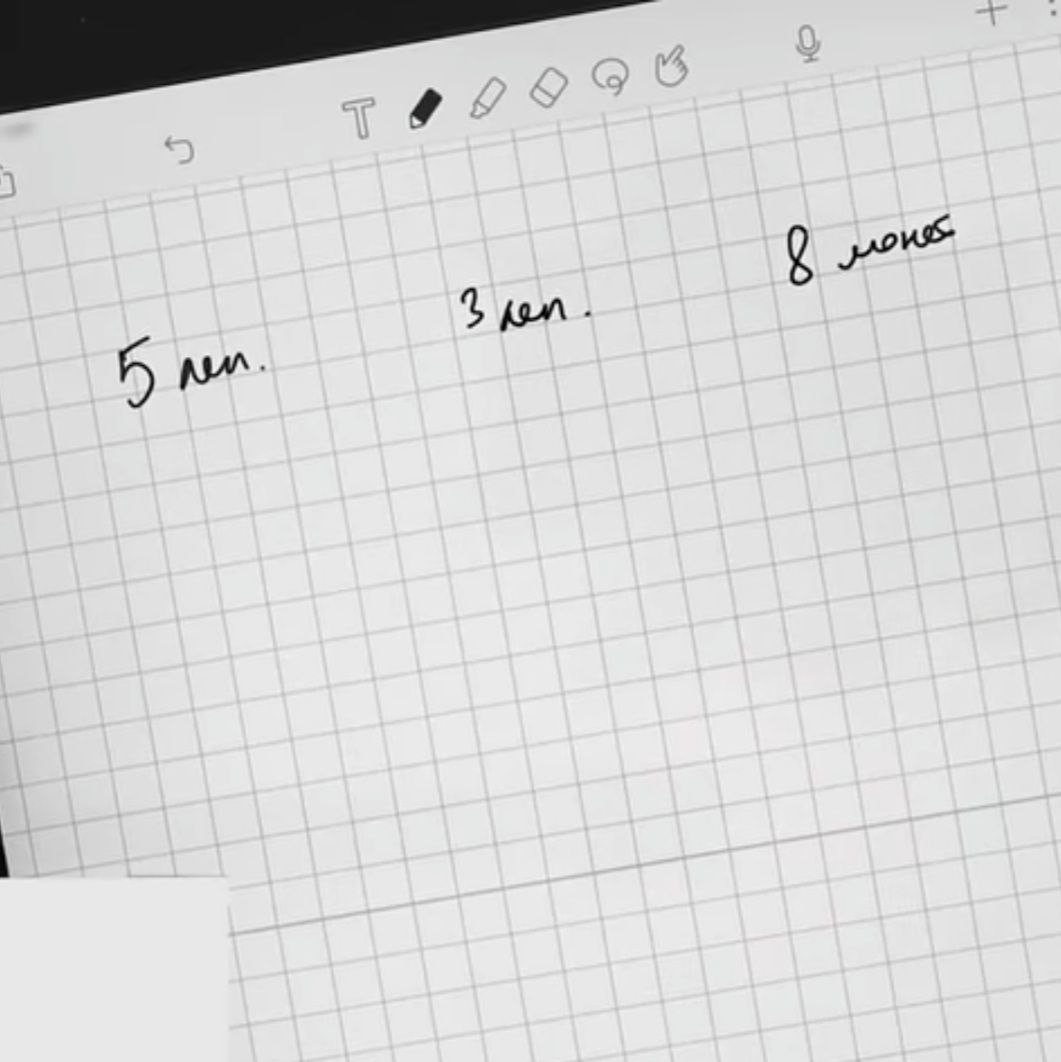 5 леп.
3 леп.
8 монет